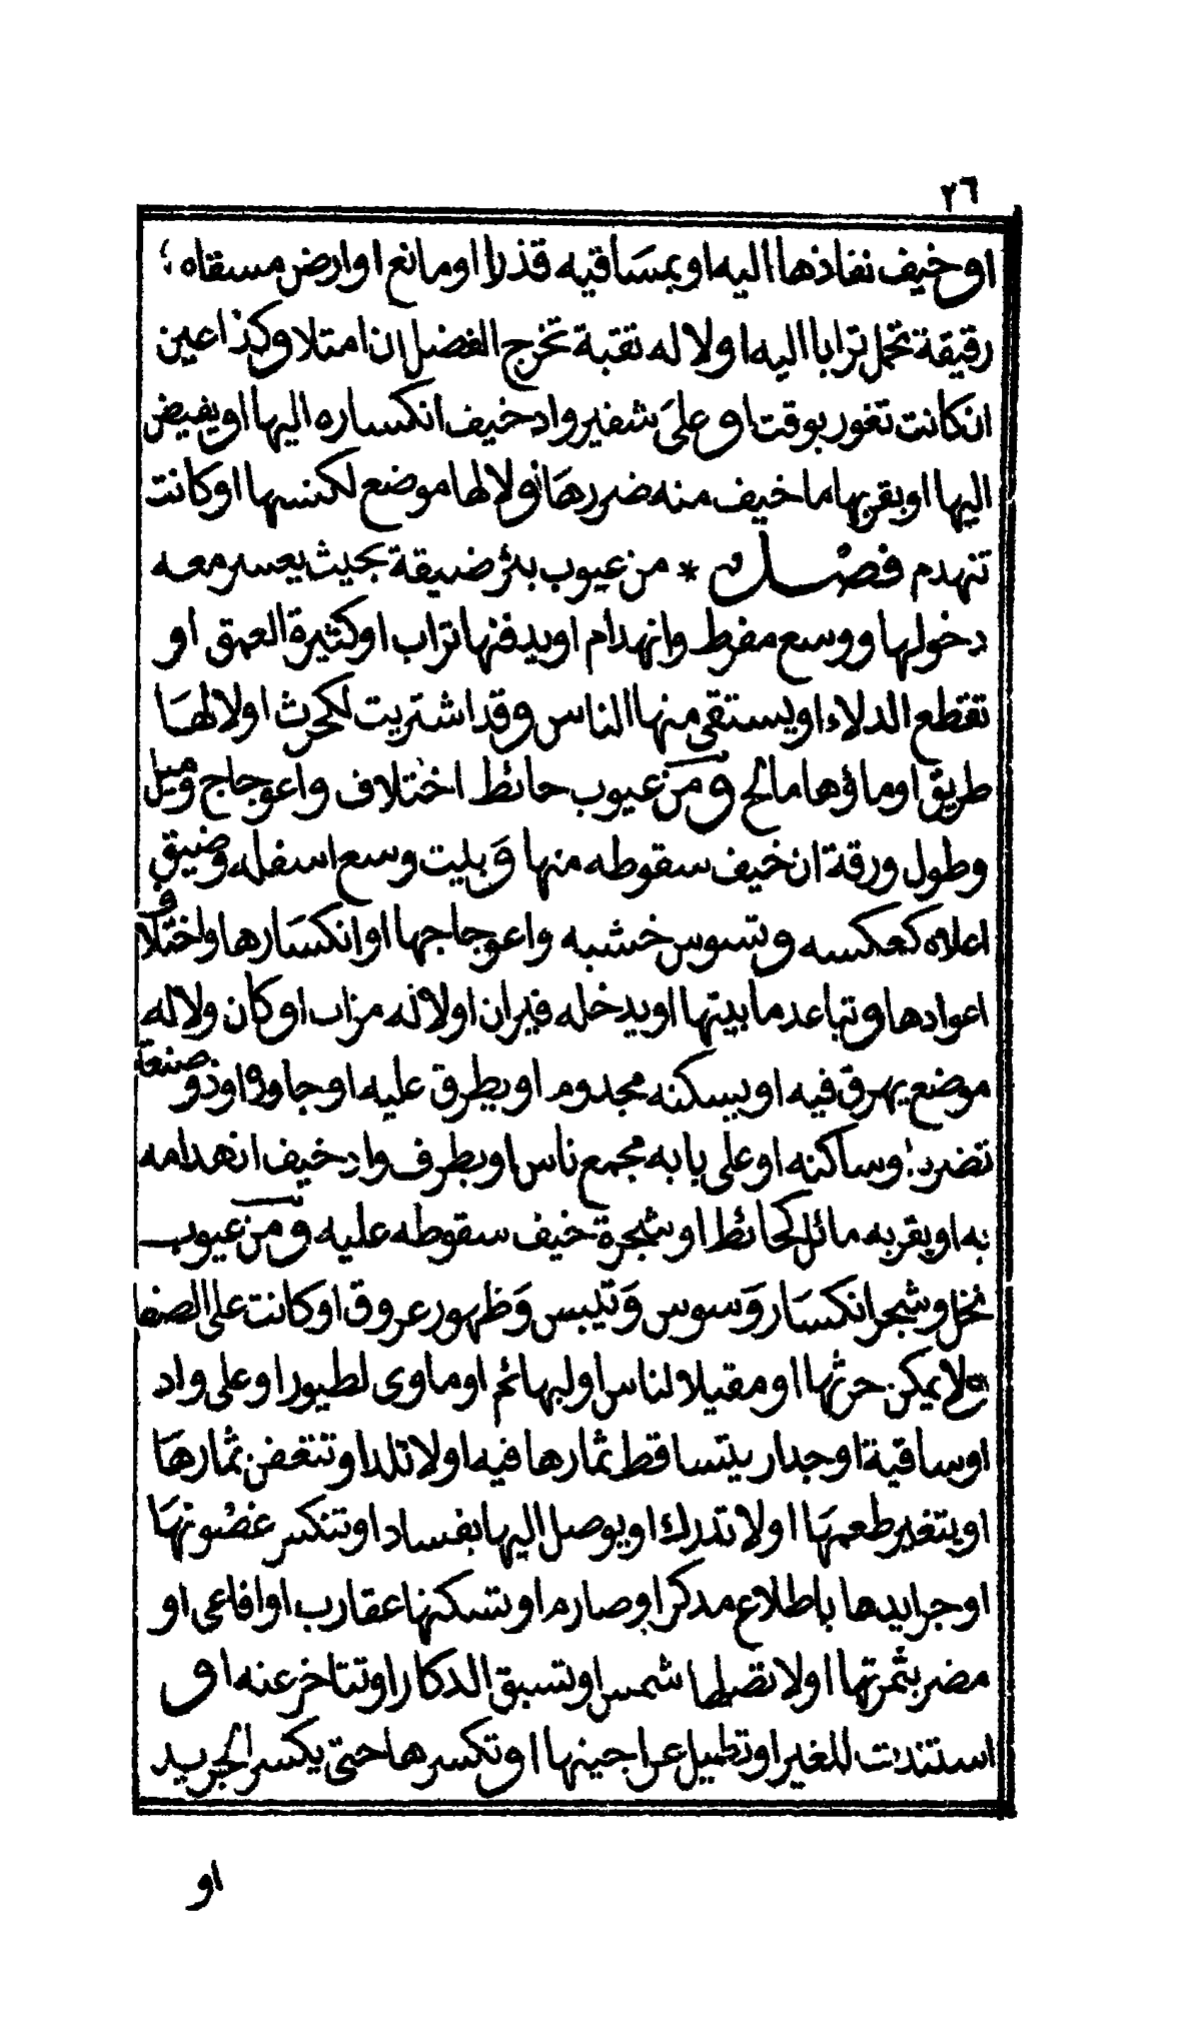 ٢٦
او خيف نفاذها اليه او بمساقيه قذرا او مانع او ارض مسقاه
رقيقة تحمل ترابا اليه او لا له ثقبة تخرج الفضل ان امتلا وكذا عين
ان كانت تغور بوقت او على شفير واد خيف انكساره اليها او يفيض
اليها او بقربها ما خيف منه ضررها او لا لها موضع لكنسها او كانت
تنهدم فصل * من عيوب بئر ضيقة بحيث يعسر معه
دخولها ووسع مفرط وانهدام او يدفنها تراب او كثيرة العمق او
تقطع الدلاء او يستقي منها الناس وقد اشتريت لكحرث او لا لها
طريق او ماؤها مالح ومن عيوب حائط اختلاف واعوجاج وميل
وطول ورقة ان خيف سقوطه منها وبيت وسع اسفله وضيق
اعلاه كعكسه وتسوس خشبه واعوجاجها او انكسارها واختلاف
اعوادها وتباعد ما بينها او يدخله فيران او لا له مزاب او كان ولا له
موضع يهرق فيه او يسكنه مجدوم او يطرق عليه او جاوره او ذو صنعة
تضر به وساكنه او على بابه مجمع ناس او بطرف واد خيف انهدامه
به او بقربه مائل كحائط او شجرة خيف سقوطه عليه ومن عيوب
نخل وشجر انكسار وسوس وتيبس وظهور عروق او كانت على الصفا
ولا يمكن حرثها او مقيلا لناس او لبهائم او ماوى لطيور او على واد
او ساقية او جدار يتساقط ثمارها فيه او لا تلد او تنتغض ثمارها
او يتغير طعمها او لا تدرك او يوصل اليها بفساد او تنكسر غضونها
او جرايدها باطلاع مدكر او صارم او تسكنها عقارب او افاعي او
مضر بثمرتها او لا تصلها شمس او تسبق الدكار او تتاخر عنه او
استندت للغير او تطيل عراجينها او تكسرها حتى يكسر الجريد
او